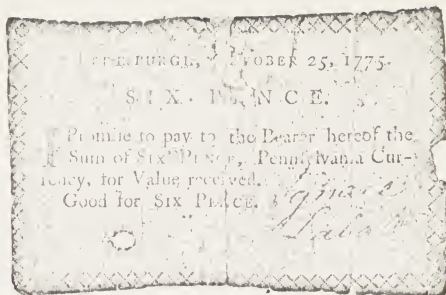 OCTOBER 25, 1775.
SIX PENCE.
I Promise to pay to the Bearer hereof the
Sum of SIX PENCE, Pennsylvania Cur-
rency, for Value received.
Good for SIX PENCE.